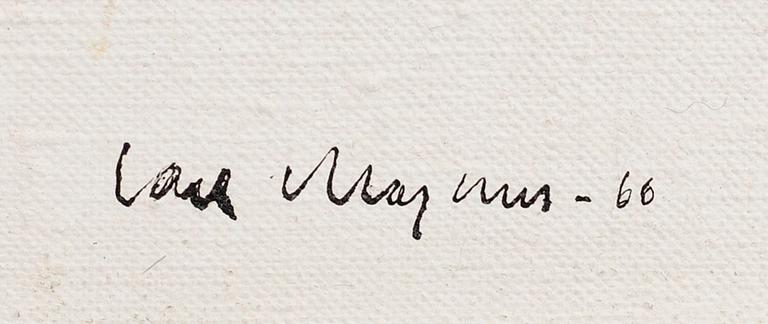 Carl Magnus - 66